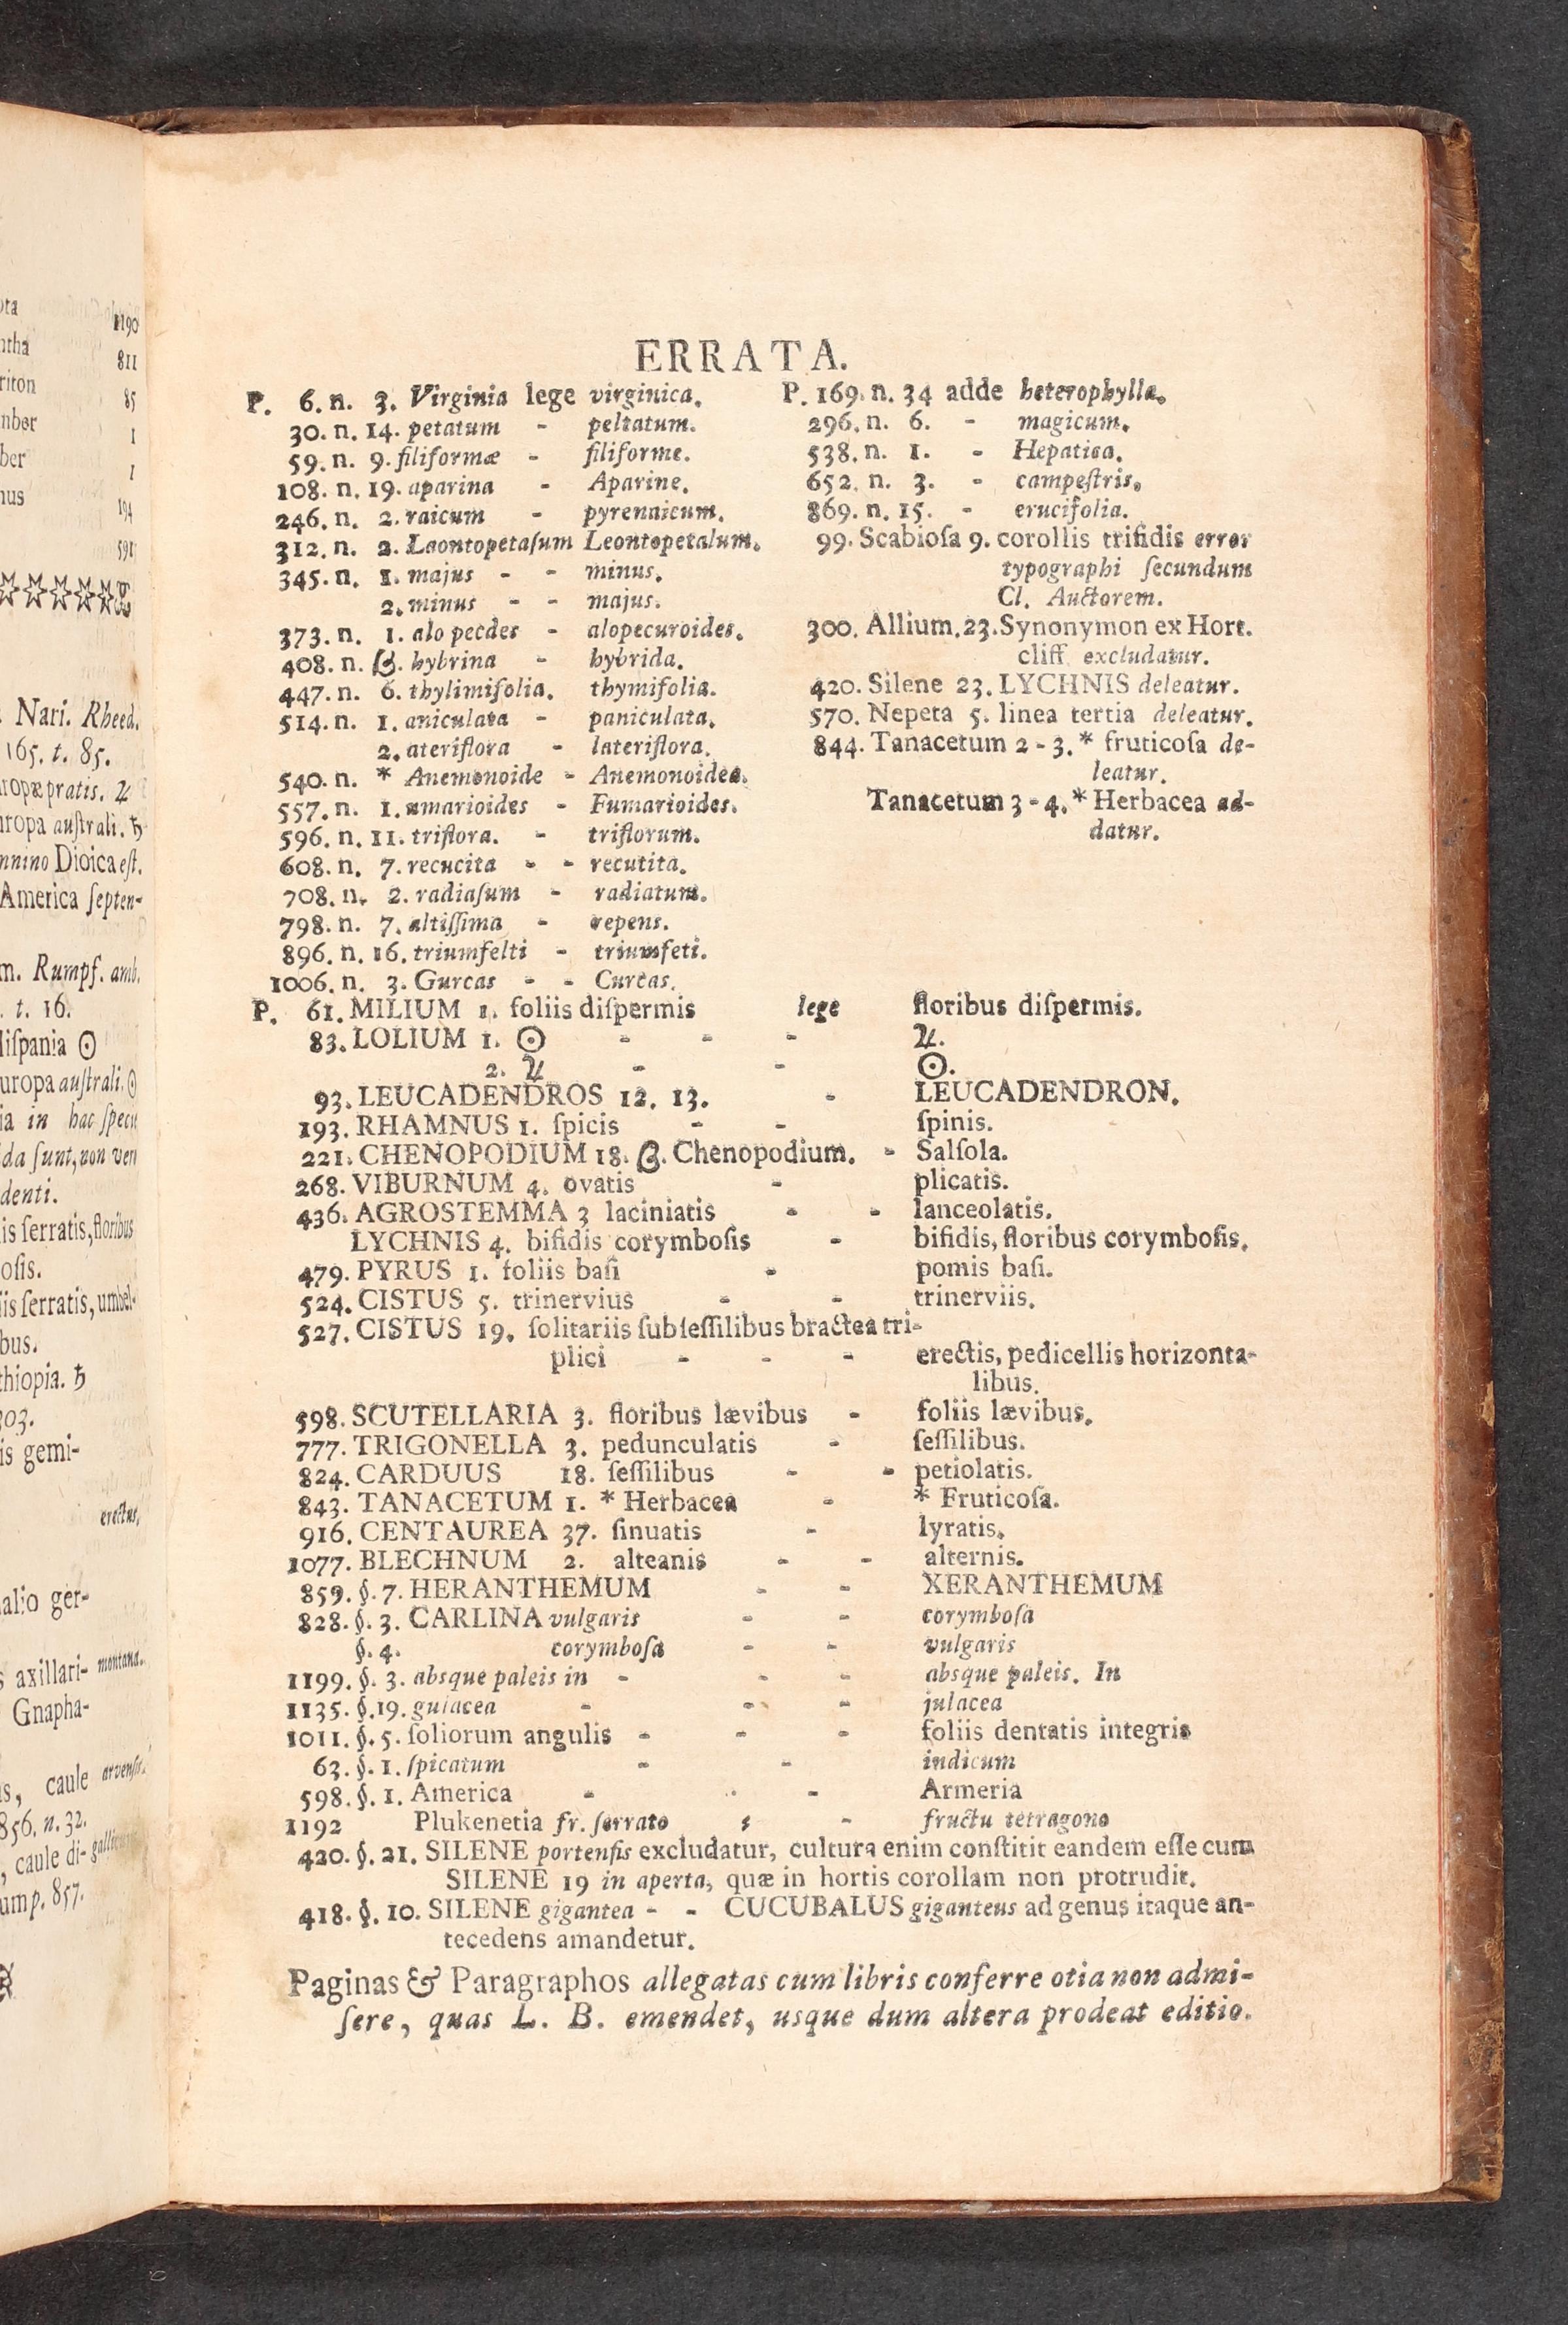 ota 1190
ntha 811
riton 85
mber 1
ber 1
nus 194
591
Nari. Rheed.
165. t. 85.
ropæ pratis. ♃
uropa auſtrali. ♄
mnino Dioica eſt.
America ſepten-
m. Rumpf. amb.
. t. 16.
Hiſpania ☉
uropa auſtrali. ☉
ia in hac
da ſunt, non
denti.
is ſerratis, floribus
oſis.
iis ſerratis, umbel-
bus.
thiopia. ♄
303.
is gemi-
erectus,
alio ger-
s axillari- montana.
Gnapha-
s, caule arvenſis.
856. n. 32.
, caule di-
ump. 857.
ERRATA.
P. 6. n. 3. Virginia lege virginica.
30. n. 14. petatum - peltatum.
59. n. 9. filiformæ - filiforme.
108. n. 19. aparina - Aparine.
246. n. 2. raicum - pyrenaicum.
312. n. 2. Laontopetaſum Leontopetalum.
345. n. 1. majus - - minus.
2. minus - - majus.
373. n. 1. alopecdes - alopecuroides.
408. n. β. hybrina - hybrida.
447. n. 6. thylimifolia. thymifolia.
514. n. 1. aniculata - paniculata.
2. ateriflora - lateriflora.
540. n. * Anemonoide - Anemonoidea.
557. n. 1. umarioides - Fumarioides.
596. n. 11. triflora. - triflorum.
608. n. 7. recucita - - recutita.
708. n. 2. radiaſum - radiatum.
798. n. 7. altiſſima - repens.
896. n. 16. triumfelti - triumfeti.
1006. n. 3. Gurcas - - Curcas.
P. 169. n. 34 adde heterophylla.
296. n. 6. - magicum.
538. n. 1. - Hepatica.
652. n. 3. - campeſtris.
869. n. 15. - erucifolia.
99. Scabioſa 9. corollis trifidis error
typographi ſecundum
Cl. Auctorem.
300. Allium. 23. Synonymon ex Hort.
cliff. excludatur.
420. Silene 23. LYCHNIS deleatur.
570. Nepeta 5. linea tertia deleatur.
844. Tanacetum 2 - 3. * fruticoſa de-
leatur.
Tanacetum 3 - 4. * Herbacea ad-
datur.
P. 61. MILIUM 1. foliis diſpermis lege floribus diſpermis.
83. LOLIUM 1. ☉ - - - ♃.
2. ♃ - - ☉.
93. LEUCADENDROS 12. 13. - LEUCADENDRON.
193. RHAMNUS 1. ſpicis - - ſpinis.
221. CHENOPODIUM 18. β. Chenopodium. - Salſola.
268. VIBURNUM 4. ovatis - plicatis.
436. AGROSTEMMA 3 laciniatis - - lanceolatis.
LYCHNIS 4. bifidis corymboſis - bifidis, floribus corymboſis.
479. PYRUS 1. foliis baſi - pomis baſi.
524. CISTUS 5. trinervius - - trinerviis.
527. CISTUS 19. ſolitariis ſubſeſſilibus bractea tri-
plici - - - erectis, pedicellis horizonta-
libus.
598. SCUTELLARIA 3. floribus lævibus - foliis lævibus.
777. TRIGONELLA 3. pedunculatis - ſeſſilibus.
824. CARDUUS 18. ſeſſilibus - - petiolatis.
843. TANACETUM 1. * Herbacea - * Fruticoſa.
916. CENTAUREA 37. ſinuatis - lyratis.
1077. BLECHNUM 2. alteanis - - alternis.
859. §. 7. HERANTHEMUM - - XERANTHEMUM
828. §. 3. CARLINA vulgaris - - corymboſa
§. 4. corymboſa - - vulgaris
1199. §. 3. absque paleis in - - - absque paleis. In
1135. §. 19. gulacea - - - julacea
1011. §. 5. foliorum angulis - - - foliis dentatis integris
63. §. 1. ſpicatum - - indicum
598. §. 1. America - - - Armeria
1192 Plukenetia fr. ſerrato - - fructu tetragono
420. §. 21. SILENE portenſis excludatur, cultura enim conſtitit eandem eſſe cum
SILENE 19 in aperta, quæ in hortis corollam non protrudit.
418. §. 10. SILENE gigantea - - CUCUBALUS giganteus ad genus itaque an-
tecedens amandetur.
Paginas & Paragraphos allegatas cum libris conferre otia non admi-
ſere, quas L. B. emendet, usque dum altera prodeat editio.